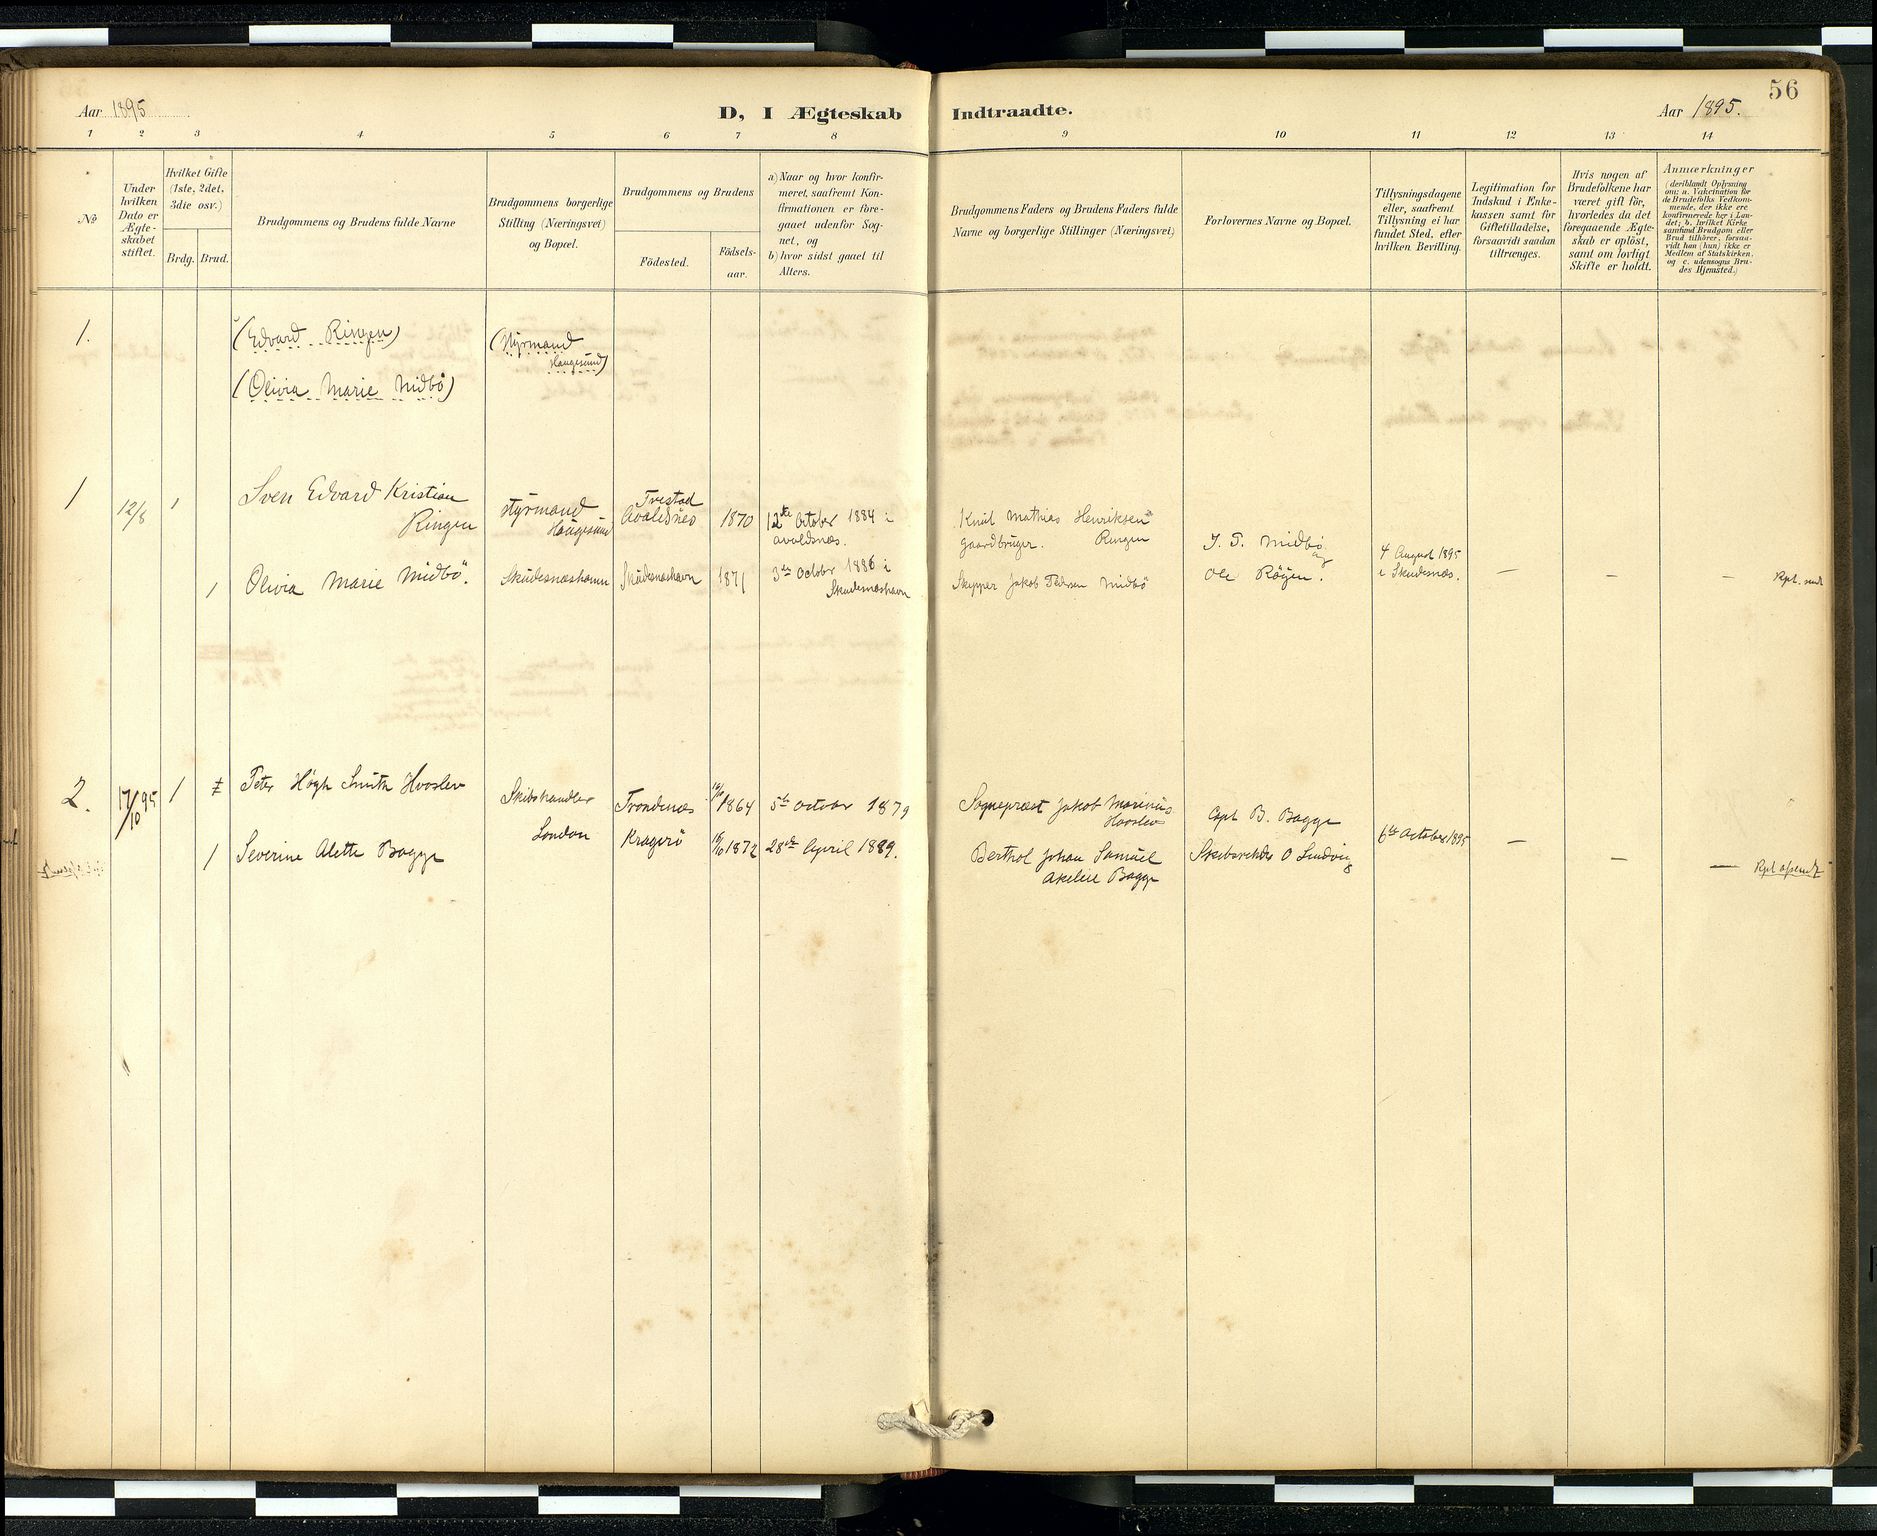 56
Aar 1895
D, I Ægteskab
Indtraadte.
Aar 1895.
1 2 3 4 5 6 7 8 9 10 11 12 13 14
No
Under
hvilken
Dato er
Ægte-
skabet
stiftet.
Hvilket Gifte
(1ste, 2det,
3die osv.)
Brdg. Brud.
Brudgommens og Brudens fulde Navne
Brudgommens borgerlige
Stilling (Næringsvei)
og Bopæl.
Brudgommens og Brudens
Födested.
Födsels-
aar.
a) Naar og hvor konfir-
meret, saafremt Kon-
firmationen er fore-
gaaet udenfor Sog-
net, og
b) hvor sidst gaaet til
Alters.
Brudgommens Faders og Brudens Faders fulde
Navne og borgerlige Stillinger (Næringsvei)
Forlovernes Navne og Bopæl.
Tillysningsdagene
eller, saafremt
Tillysning ei har
fundet Sted, efter
hvilken Bevilling.
Legitimation for
Indskud i Enke-
kassen samt for
Giftetilladelse,
forsaavidt saadan
tiltrænges.
Hvis nogen af
Brudefolkene har
været gift för,
hvorledes da det
foregaaende Ægte-
skab er oplöst,
samt om lovligt
Skifte er holdt.
Anmærkninger
(deriblandt Oplysning
om: a. Vakcination for
de Brudefolks Vedkom-
mende, der ikke ere
konfirmerede her i Lan-
det; b. hvilket Kirke
samfund Brudgom eller
Brud tilhörer, forsaa-
vidt han (hun) ikke er
Medlem af Statskirken,
og c. udensogns Bru-
des Hjemsted.)
1.
(Edvard Ringen)
(Styrmand
Haugesund)
(Olivia Marie Midbö)
1 12/8 1
Sven Edvard Kristian
Ringen
Styrmand
Haugesund
Tvestad
Avaldsnes
1870
12te October 1884 i
Avaldsnæs.
Knut Mathias Henriksen
gaardbruger. Ringen
J. T. Midbö
og
Ole Röyen.
4 August 1895
i Skudesnæs.
1 Olivia Marie Midbö. Skudesnæshavn Skudesnæshavn 1871
3die October 1886 i
Skudesnæshavn
Skipper Jakob Pedersen Midbö
— — — Rpt. sendt
2. 17/10 95 1
Peter Høgh Smith Hvoslev
Skibshandler
London
Trondenæs 1864 5te October 1879
Sognepræst Jakob Marinus
Hvoslev
Capt B. Bagge
1 Severine Alette Bagge Kragerö 16/10 1872 28de April 1889.
Berthol Johan Samuel
Bagge
Skibsrheder O Lindvig
6te October 1895
— — — Rpt afsendt